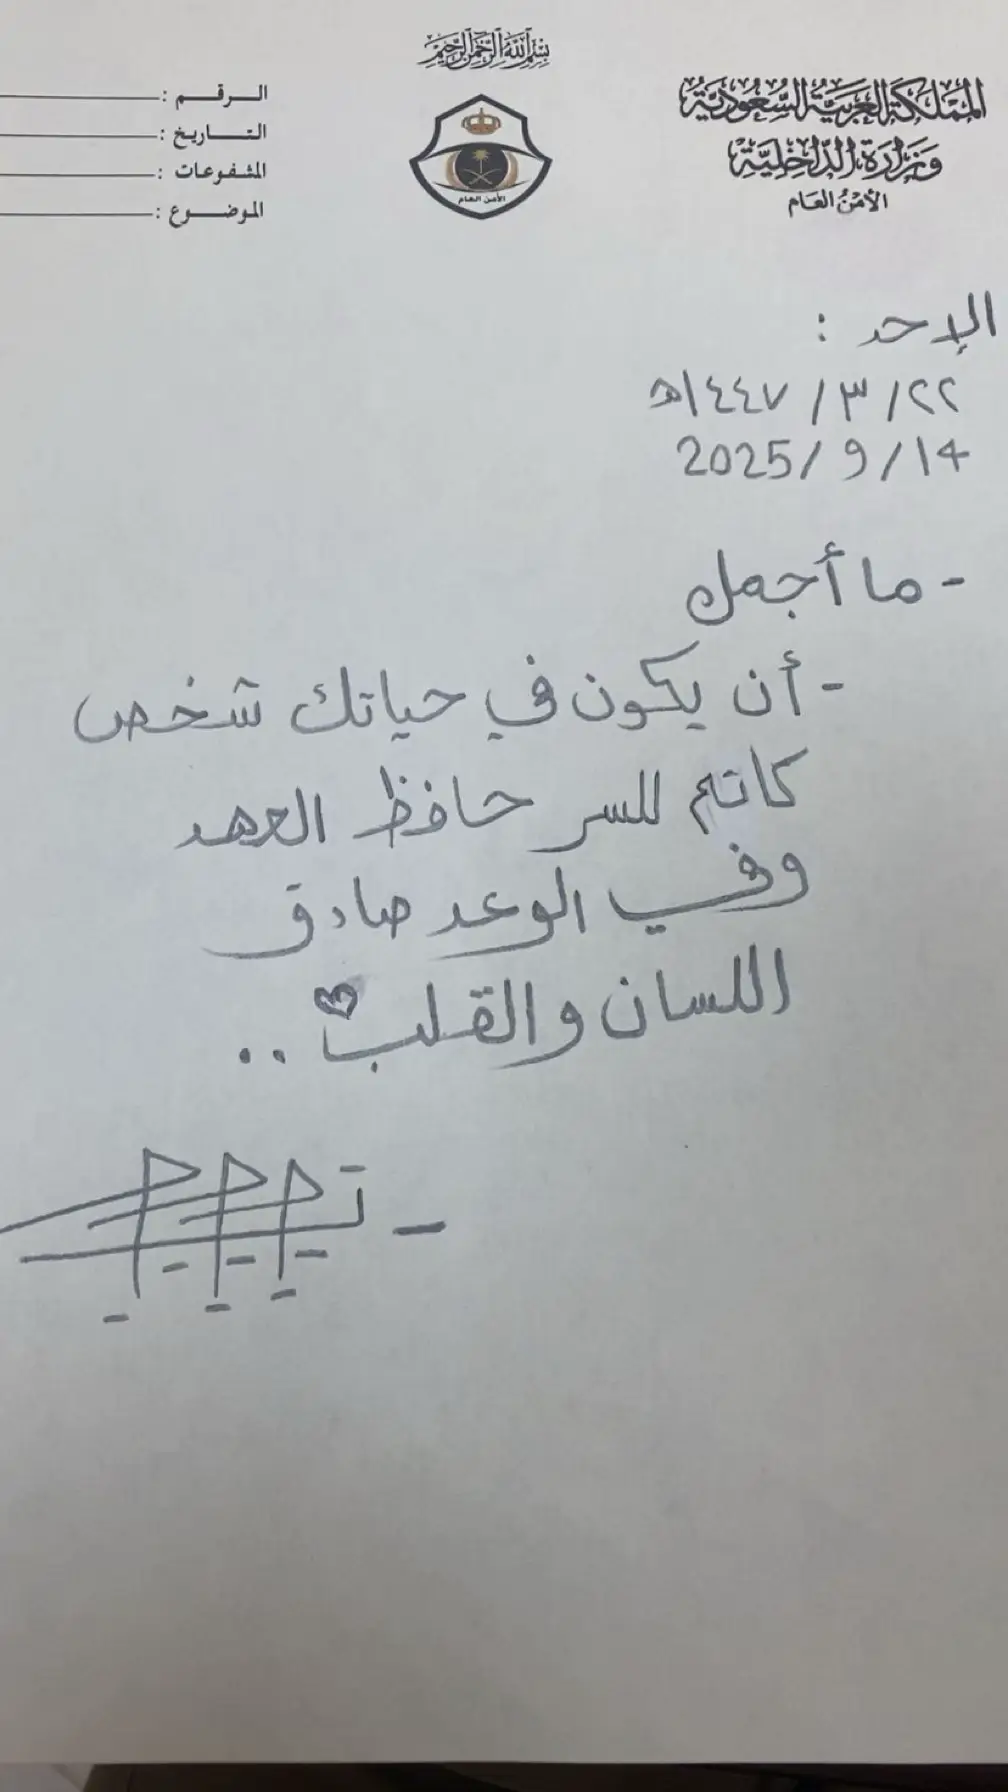 بسم الله الرحمن الرحيم
المملكة العربية السعودية
وزارة الداخلية
الأمن العام
الأمن العام
الرقم :
التاريخ :
المشفوعات :
الموضوع :
الإحد :
٢٢ / ٣ / ١٤٤٧هـ
2025/9/14
- ما أجمل
- أن يكون في حياتك شخص
كاتم للسر حافظ العهد
وفي الوعد صادق
اللسان والقلب ♡ ..